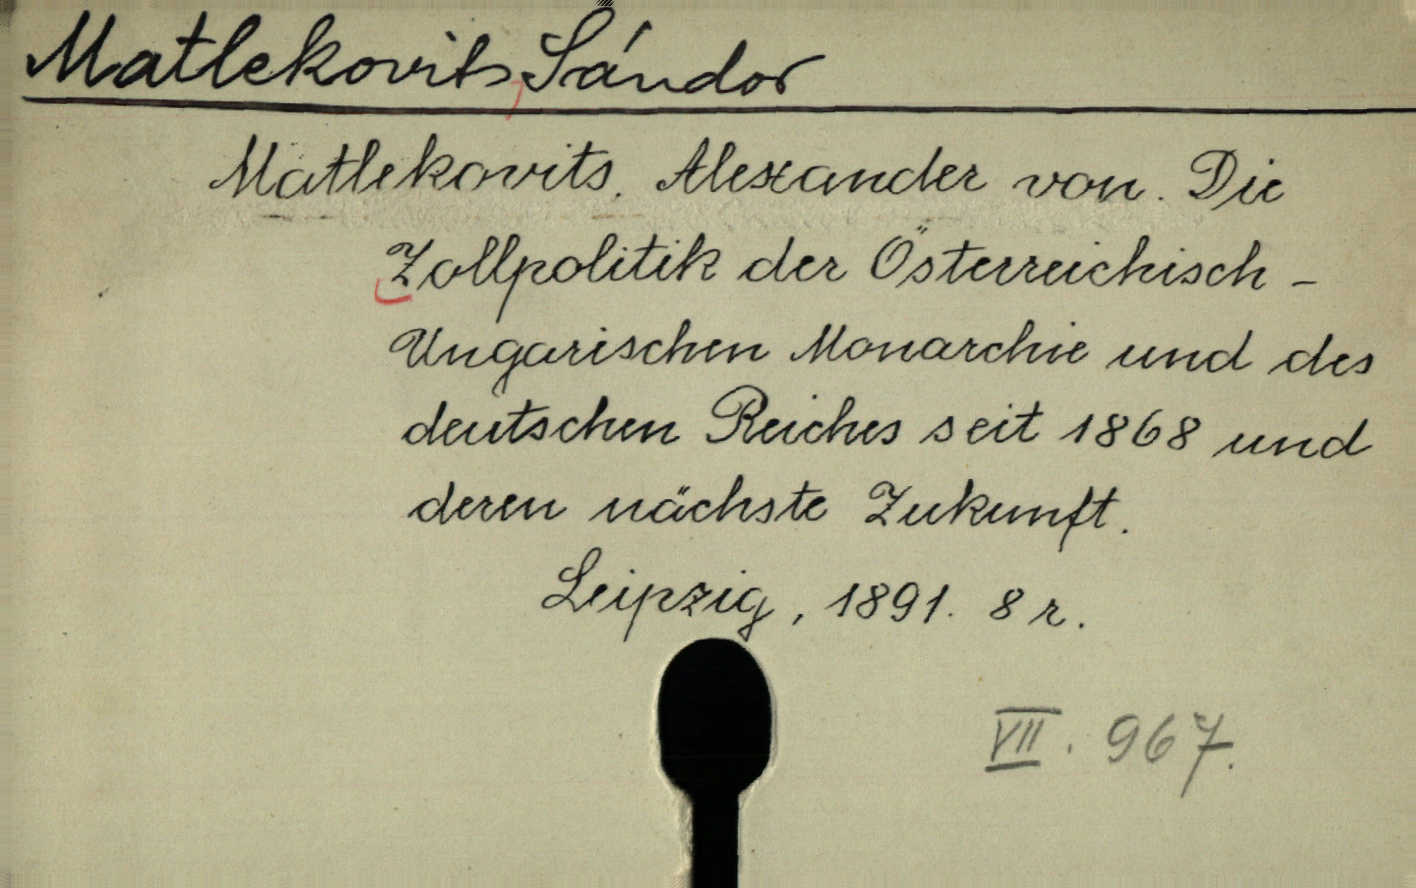 Matlekovits, Sándor
Matlekovits. Alexander von. Die
Zollpolitik der Österreichisch-
Ungarischen Monarchie und des
deutschen Reiches seit 1868 und
deren nächste Zukunft.
Leipzig, 1891. 8 r.
VII. 967.